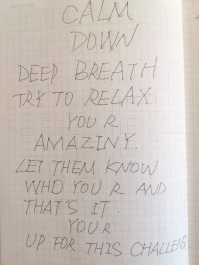 CALM
DOWN
DEEP BREATH
TRY TO RELAX
YOU R
AMAZINY.
LET THEM KNOW
WHO YOU R AND
THAT'S IT.
YOUR
UP FOR THIS CHALLENG